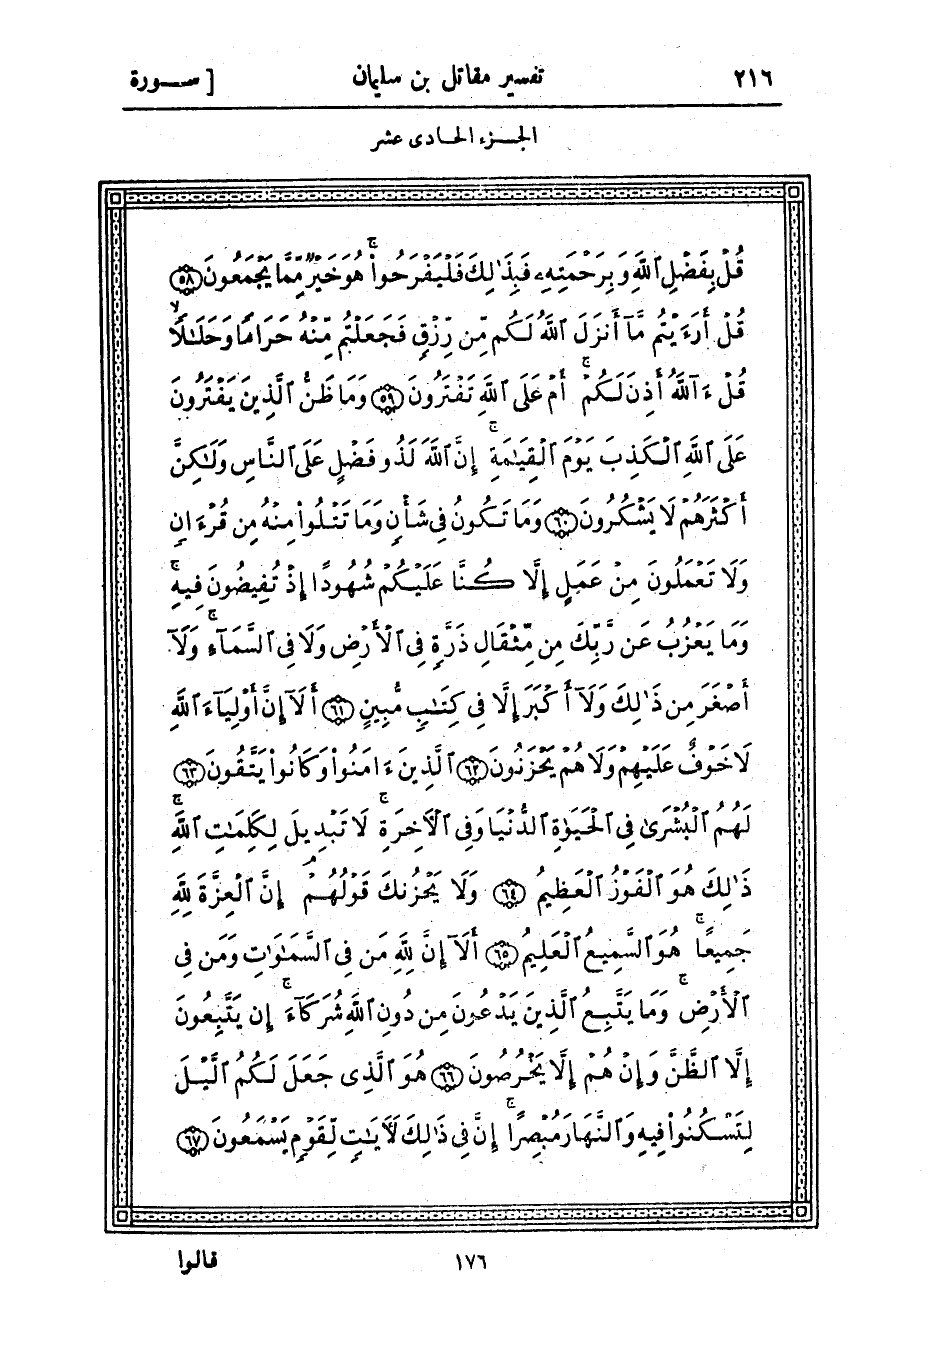 ٢١٦ تفسير مقاتل بن سليمان [ ســورة
الجــزء الحادى عشر
قُلْ بِفَضْلِ ٱللَّهِ وَبِرَحْمَتِهِۦ فَبِذَٰلِكَ فَلْيَفْرَحُوا۟ هُوَ خَيْرٌ مِّمَّا يَجْمَعُونَ ﴿٥٨﴾
قُلْ أَرَءَيْتُم مَّآ أَنزَلَ ٱللَّهُ لَكُم مِّن رِّزْقٍ فَجَعَلْتُم مِّنْهُ حَرَامًا وَحَلَـٰلًا
قُلْ ءَآللَّهُ أَذِنَ لَكُمْ ۖ أَمْ عَلَى ٱللَّهِ تَفْتَرُونَ ﴿٥٩﴾ وَمَا ظَنُّ ٱلَّذِينَ يَفْتَرُونَ
عَلَى ٱللَّهِ ٱلْكَذِبَ يَوْمَ ٱلْقِيَـٰمَةِ ۚ إِنَّ ٱللَّهَ لَذُو فَضْلٍ عَلَى ٱلنَّاسِ وَلَـٰكِنَّ
أَكْثَرَهُمْ لَا يَشْكُرُونَ ﴿٦٠﴾ وَمَا تَكُونُ فِى شَأْنٍ وَمَا تَتْلُوا۟ مِنْهُ مِن قُرْءَانٍ
وَلَا تَعْمَلُونَ مِنْ عَمَلٍ إِلَّا كُنَّا عَلَيْكُمْ شُهُودًا إِذْ تُفِيضُونَ فِيهِ ۚ
وَمَا يَعْزُبُ عَن رَّبِّكَ مِن مِّثْقَالِ ذَرَّةٍ فِى ٱلْأَرْضِ وَلَا فِى ٱلسَّمَآءِ ۚ وَلَآ
أَصْغَرَ مِن ذَٰلِكَ وَلَآ أَكْبَرَ إِلَّا فِى كِتَـٰبٍ مُّبِينٍ ﴿٦١﴾ أَلَآ إِنَّ أَوْلِيَآءَ ٱللَّهِ
لَا خَوْفٌ عَلَيْهِمْ وَلَا هُمْ يَحْزَنُونَ ﴿٦٢﴾ ٱلَّذِينَ ءَامَنُوا۟ وَكَانُوا۟ يَتَّقُونَ ﴿٦٣﴾
لَهُمُ ٱلْبُشْرَىٰ فِى ٱلْحَيَوٰةِ ٱلدُّنْيَا وَفِى ٱلْأَخِرَةِ ۚ لَا تَبْدِيلَ لِكَلِمَـٰتِ ٱللَّهِ ۚ
ذَٰلِكَ هُوَ ٱلْفَوْزُ ٱلْعَظِيمُ ﴿٦٤﴾ وَلَا يَحْزُنكَ قَوْلُهُمْ ۘ إِنَّ ٱلْعِزَّةَ لِلَّهِ
جَمِيعًا ۚ هُوَ ٱلسَّمِيعُ ٱلْعَلِيمُ ﴿٦٥﴾ أَلَآ إِنَّ لِلَّهِ مَن فِى ٱلسَّمَـٰوَٰتِ وَمَن فِى
ٱلْأَرْضِ ۚ وَمَا يَتَّبِعُ ٱلَّذِينَ يَدْعُونَ مِن دُونِ ٱللَّهِ شُرَكَآءَ ۚ إِن يَتَّبِعُونَ
إِلَّا ٱلظَّنَّ وَإِنْ هُمْ إِلَّا يَخْرُصُونَ ﴿٦٦﴾ هُوَ ٱلَّذِى جَعَلَ لَكُمُ ٱلَّيْلَ
لِتَسْكُنُوا۟ فِيهِ وَٱلنَّهَارَ مُبْصِرًا ۚ إِنَّ فِى ذَٰلِكَ لَأَيَـٰتٍ لِّقَوْمٍ يَسْمَعُونَ ﴿٦٧﴾
١٧٦ قالوا